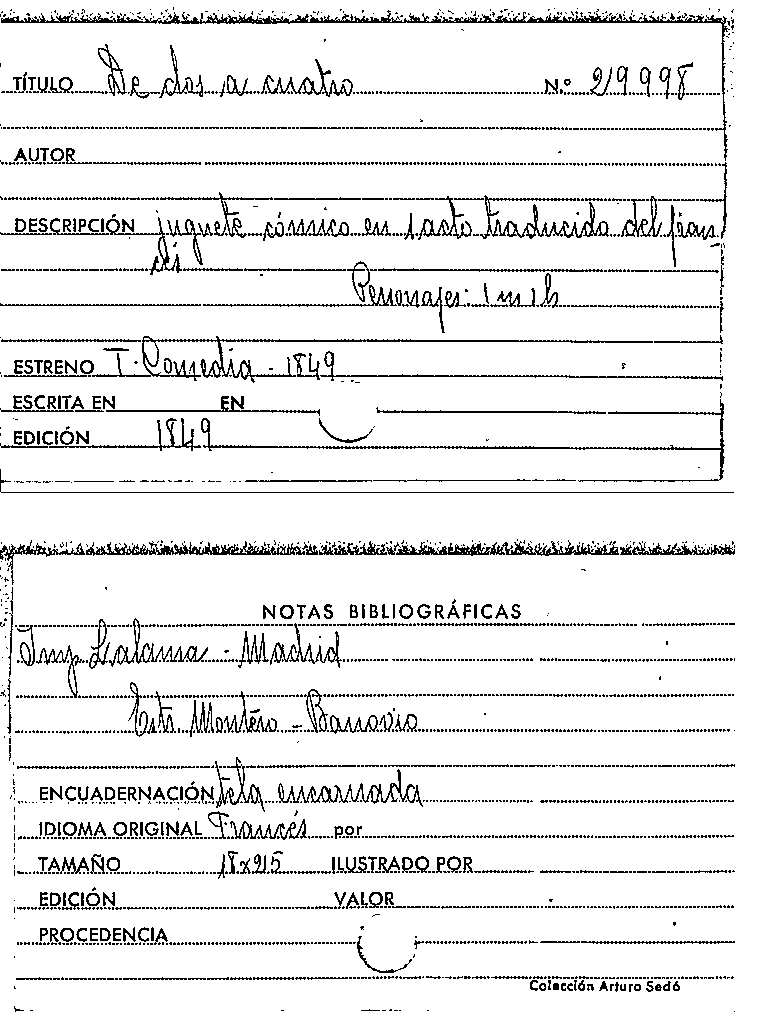 TÍTULO De dos a cuatro N.º 219998
AUTOR
DESCRIPCIÓN juguete cómico en 1 acto traducido del fran-
cés
Personajes: 1 m 1 h
ESTRENO T. Comedia - 1849
ESCRITA EN EN
EDICIÓN 1849
NOTAS BIBLIOGRÁFICAS
Imp. Lalama - Madrid
Montero -
ENCUADERNACIÓN tela encarnada
IDIOMA ORIGINAL Francés por
TAMAÑO 18x25 ILUSTRADO POR
EDICIÓN VALOR
PROCEDENCIA
Colección Arturo Sedó